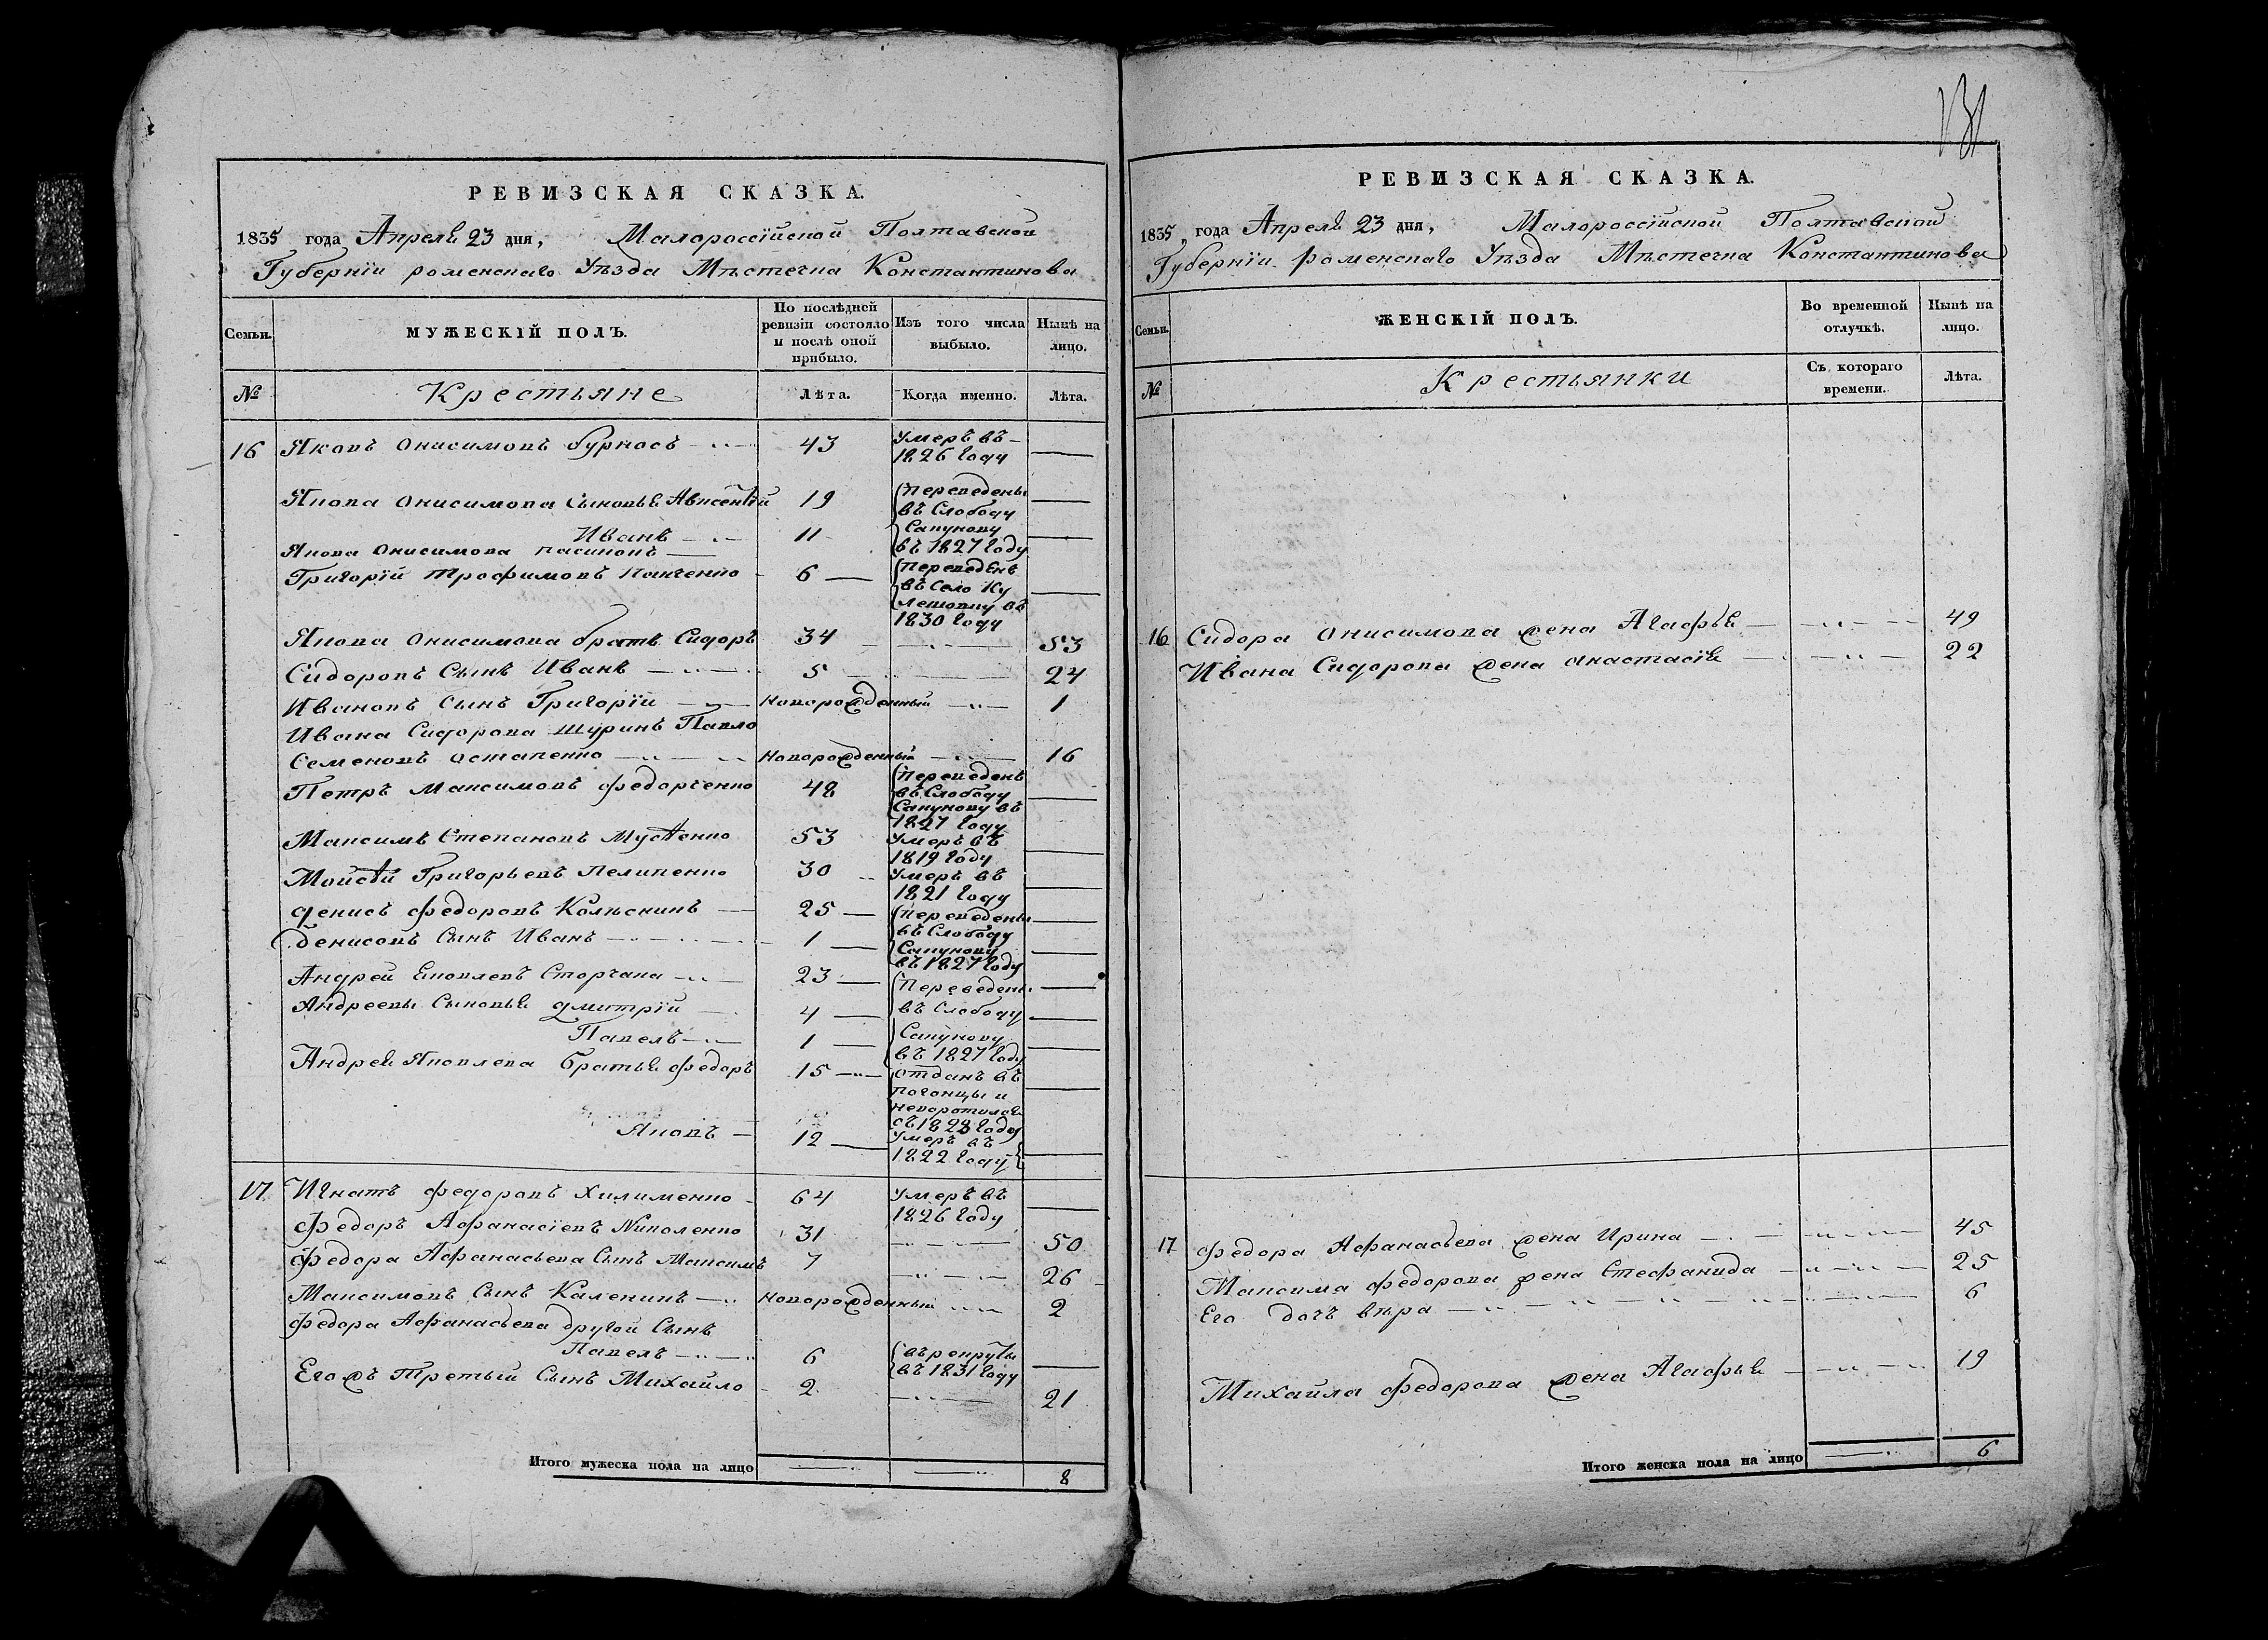 131
РЕВИЗСКАЯ СКАЗКА.
1835 года Апреля 23 дня, Малороссійской Полтавской
Губерніи роменскаго Уѣзда Мѣстечка Константинова
Семьи.
МУЖЕСКІЙ ПОЛЪ.
По послѣдней ревизіи состояло и послѣ оной прибыло.
Изъ того числа выбыло.
Нынѣ на лицо.
№
Крестьяне
Лѣта.
Когда именно.
Лѣта.
16 Яковъ Онисимовъ Бурносъ 43 Умеръ въ 1826 году
Якова Онисимова Сыновья Авксентій 19 Переведены въ Слободу
Иванъ 11 Сапунову въ 1827 году
Якова Онисимова пасинокъ
Григорій Трофимовъ Панченко 6 Переведенъ въ Село Кулешовку въ 1830 году
Якова Онисимова братъ Сидоръ 34 53
Сидоровъ Сынъ Иванъ 5 24
Ивановъ Сынъ Григорій Новорожденный 1
Ивана Сидорова Шуринъ Павло
Семеновъ Остапенко Новорожденный 16
Петръ Максимовъ Федорченко 48 Переведенъ въ Слободу Сапунову въ 1827 году
Максимъ Степановъ Мусѣенко 53 Умеръ въ 1819 году
Мойсѣй Григорьевъ Пелипенко 30 Умеръ въ 1821 году
Денисъ Федоровъ Колѣсникъ 25 Переведены въ Слободу
Денисовъ Сынъ Иванъ 1 Сапунову въ 1827 году
Андрей Яковлевъ Сторчака 23 Переведены
Андреевы Сыновья Дмитрій 4 въ Слободу
Павелъ 1 Сапунову въ 1827 году
Андрея Яковлева братья Федоръ 15 отданъ въ погонцы и неворотился съ 1828 году
Яковъ 12 Умеръ въ 1822 году
17 Игнатъ Федоровъ Хилименко 64 Умеръ въ 1826 году
Федоръ Афанасіевъ Николенко 31 50
Федора Афанасьева Сынъ Максимъ 7 26
Максимовъ Сынъ Каленикъ Новорожденный 2
Федора Афанасьева другой Сынъ
Павелъ 6 въ рекруты въ 1831 году
Его жъ Третьій Сынъ Михайло 2 21
Итого мужеска пола на лицо 8
РЕВИЗСКАЯ СКАЗКА.
1835 года Апреля 23 дня, Малороссійской Полтавской
Губерніи Роменскаго Уѣзда Мѣстечка Константинова
Семьи.
ЖЕНСКІЙ ПОЛЪ.
Во временной отлучкѣ.
Нынѣ на лицо.
№
Крестьянки
Съ котораго времени.
Лѣта.
16 Сидора Онисимова жена Агафья 49
Ивана Сидорова жена Анастасія 22
17 Федора Афанасьева жена Ирина 45
Максима Федорова жена Стефанида 25
Его дочь вѣра 6
Михайла Федорова жена Агафья 19
Итого женска пола на лицо 6